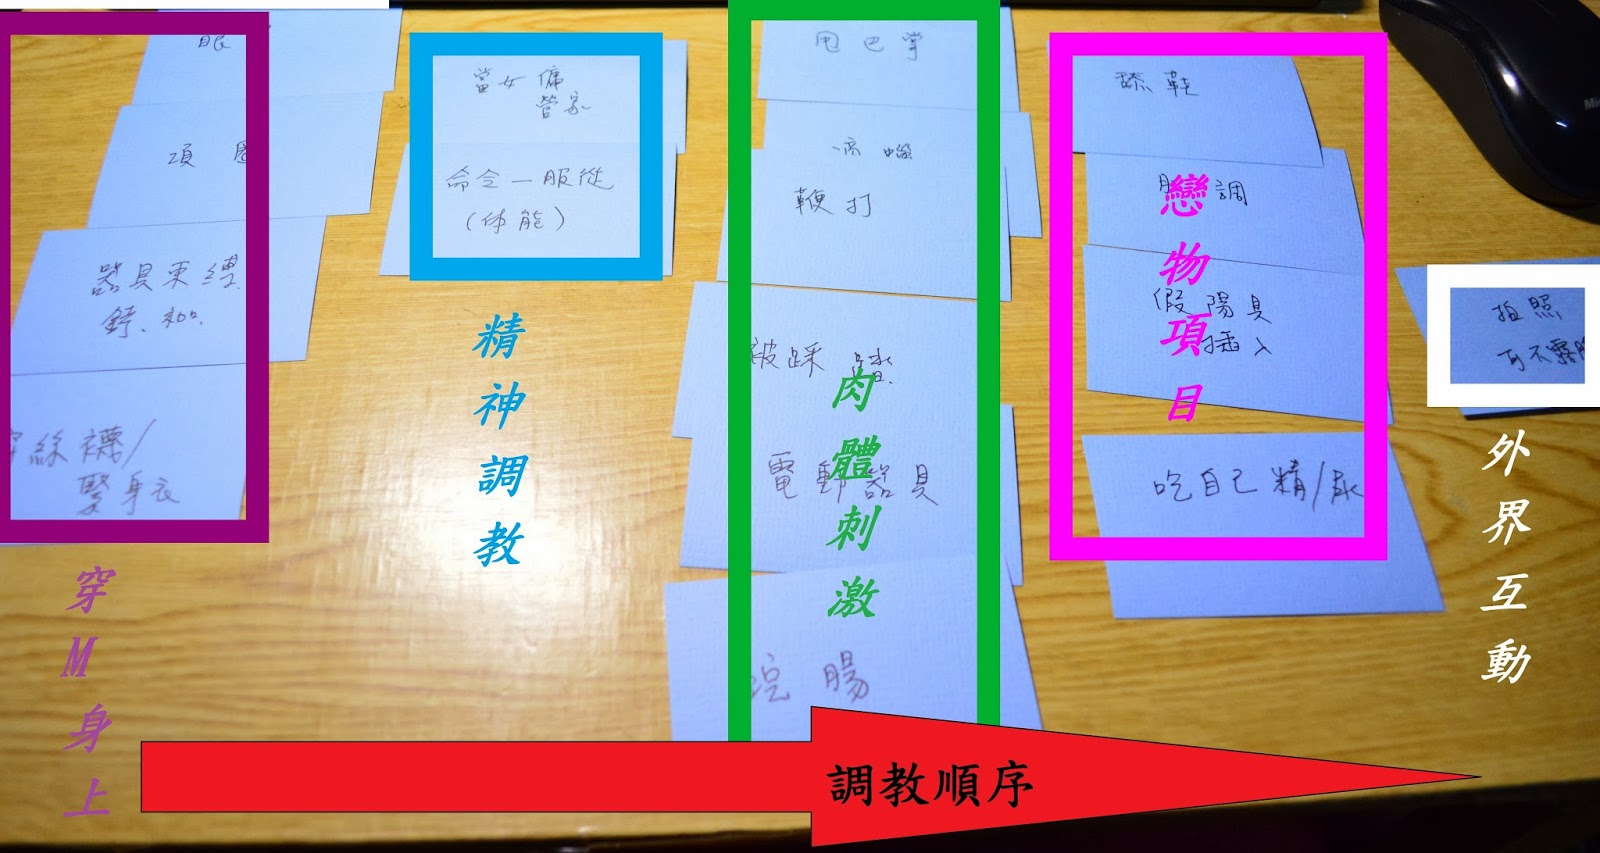 眼
項圈
器具束縛
銬、枷
穿絲襪/
緊身衣
穿M身上
當女傭
管家
命令－服從
(体能)
精神調教
甩巴掌
滴蠟
鞭打
被踩踏
電動器具
浣腸
肉體刺激
舔鞋
調
假陽具
插入
吃自己精/尿
戀物項目
拍照
可不露臉
外界互動
調教順序